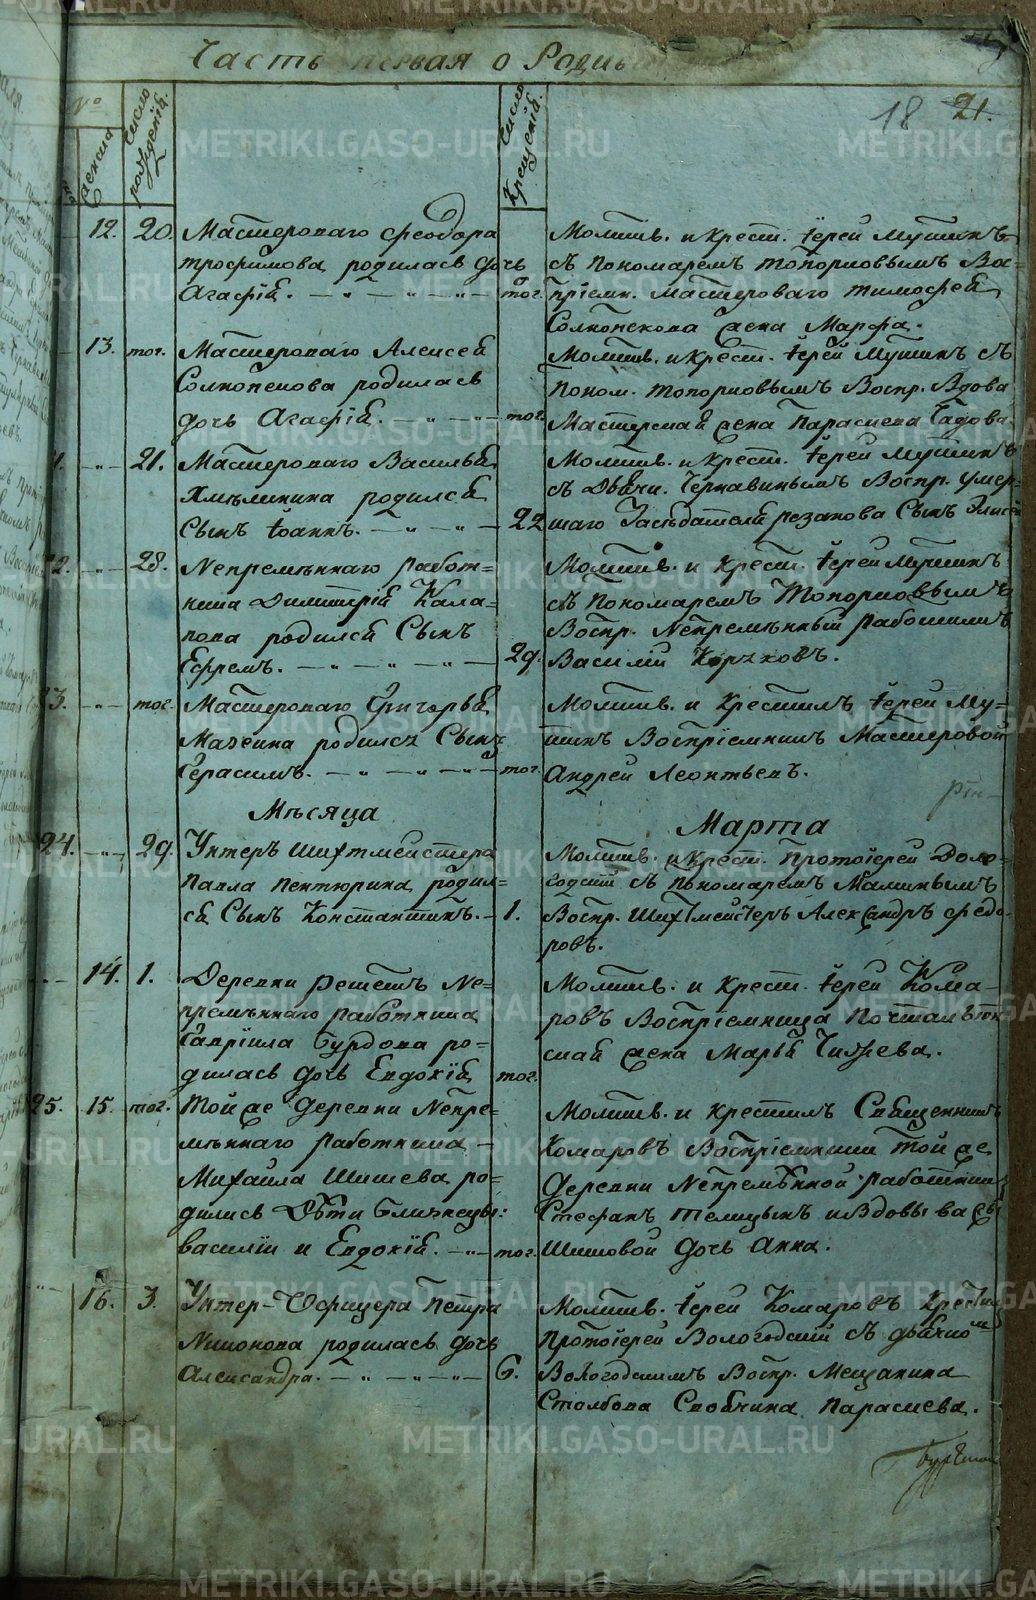 Часть первая о Роди
18 21.
№
женска
число рождений.
число Крещений.
12. 20. Мастероваго Феодора
Трофимова родилась дочь
Агафiя. — „ — „ — „ — тог.
Молитв. и Крест. Iерей Мутинъ
съ пономаремъ Топорковымъ Вос-
прiемн. Мастероваго Тимофея
жена Марфа.
13. тог. Мастероваго Алексея
родилась
дочь Агафiя. „ — „ — тог.
Молитв. и Крест. Iерей Мутинъ съ
поном. Топорковымъ Воспр. Вдова
жена Параскева
1. — „ — 21. Мастероваго Василья
Хмѣлинина родился
Сынъ Iоаннъ. — „ — „ — 22
Молитв. и Крест. Iерей Мутинъ
съ Дьячк. Чернавинымъ Воспр. умер-
шаго Засѣдателя Резанова Сынъ
22. — „ — 28. Непремѣннаго работ=
ника Димитрiя
родился Сынъ
Ефремъ. — „ — „ — „ — 29.
Молитв. и Крест. Iерей Мутинъ
съ Пономаремъ Топорковымъ
Воспр. Непремѣнный работникъ
Василiй
23. — „ — тог. Мастероваго Григорья
Мазеина родился Сынъ
Герасимъ. — „ — „ — „ — тог.
Молитв. и Крестилъ Iерей Му=
тинъ Воспрiемникъ Мастеровой
Андрей Леонтьевъ.
Мѣсяца Марта
24. — „ — 29. Унтеръ Шихтмейстера
Павла Пентюрина родил=
ся Сынъ Константинъ. — 1.
Молитв. и Крест. Протоiерей Воло-
годскiй съ Пономаремъ Малинымъ
Воспр. Шихтмейстеръ Александръ Федо-
ровъ.
14. 1. Деревни Решетъ Не=
премѣннаго работника
Гаврiила Бурдова ро=
дилась дочь Евдокiя тог.
Молитв. и Крест. Iерей Кома-
ровъ Воспрiемница
жена Марья
25. 15. тог. Той же Деревни Непре-
мѣннаго работника —
Михаила Шишева ро=
дились Дѣти близнецы:
Василiй и Евдокiй. — „ — тог.
Молитв. и Крестилъ Священникъ
Комаровъ Воспрiемники Той же
Деревни Непремѣнной работникъ
Стефанъ Телицынъ и Вдовы
Шишовой Дочь Анна.
„ — 16. 3. Унтер=Офицера Петра
Никонова родилась дочь
Александра. — „ — „ — „ — 6.
Молитв. Iерей Комаровъ Крестилъ
Протоiерей Вологодскiй съ дьячко
Вологодскимъ Воспр. Мещанина
Столбова Параскева.
METRIKI.GASO-URAL.RU